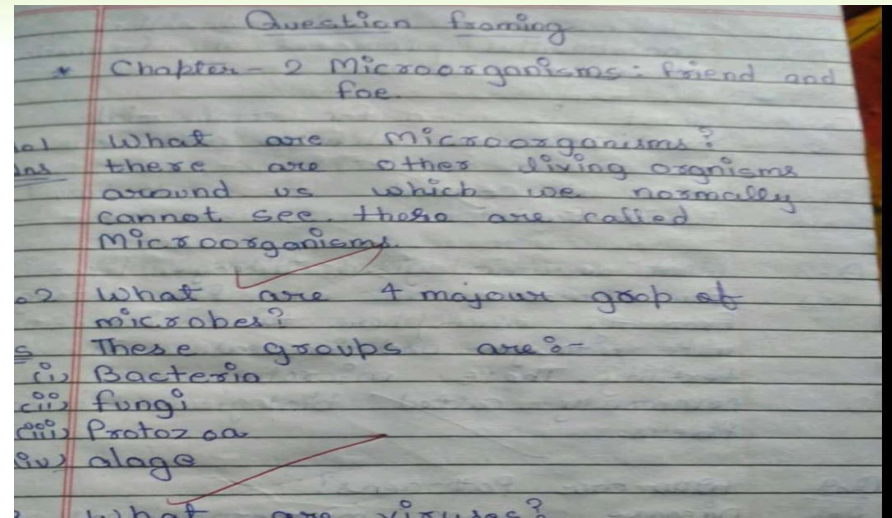 Question framing
* Chapter - 2 Microorganisms: friend and
foe.
What are microorganisms?
Ans there are other living orgnisms
around us which we normally
cannot see. these are called
Microorganisms.
.2 What are 4 majour goop of
microbes?
s These groups are:-
(i) Bacteria
(ii) fungi
(iii) Protozoa
(iv) alage
What are viruses?